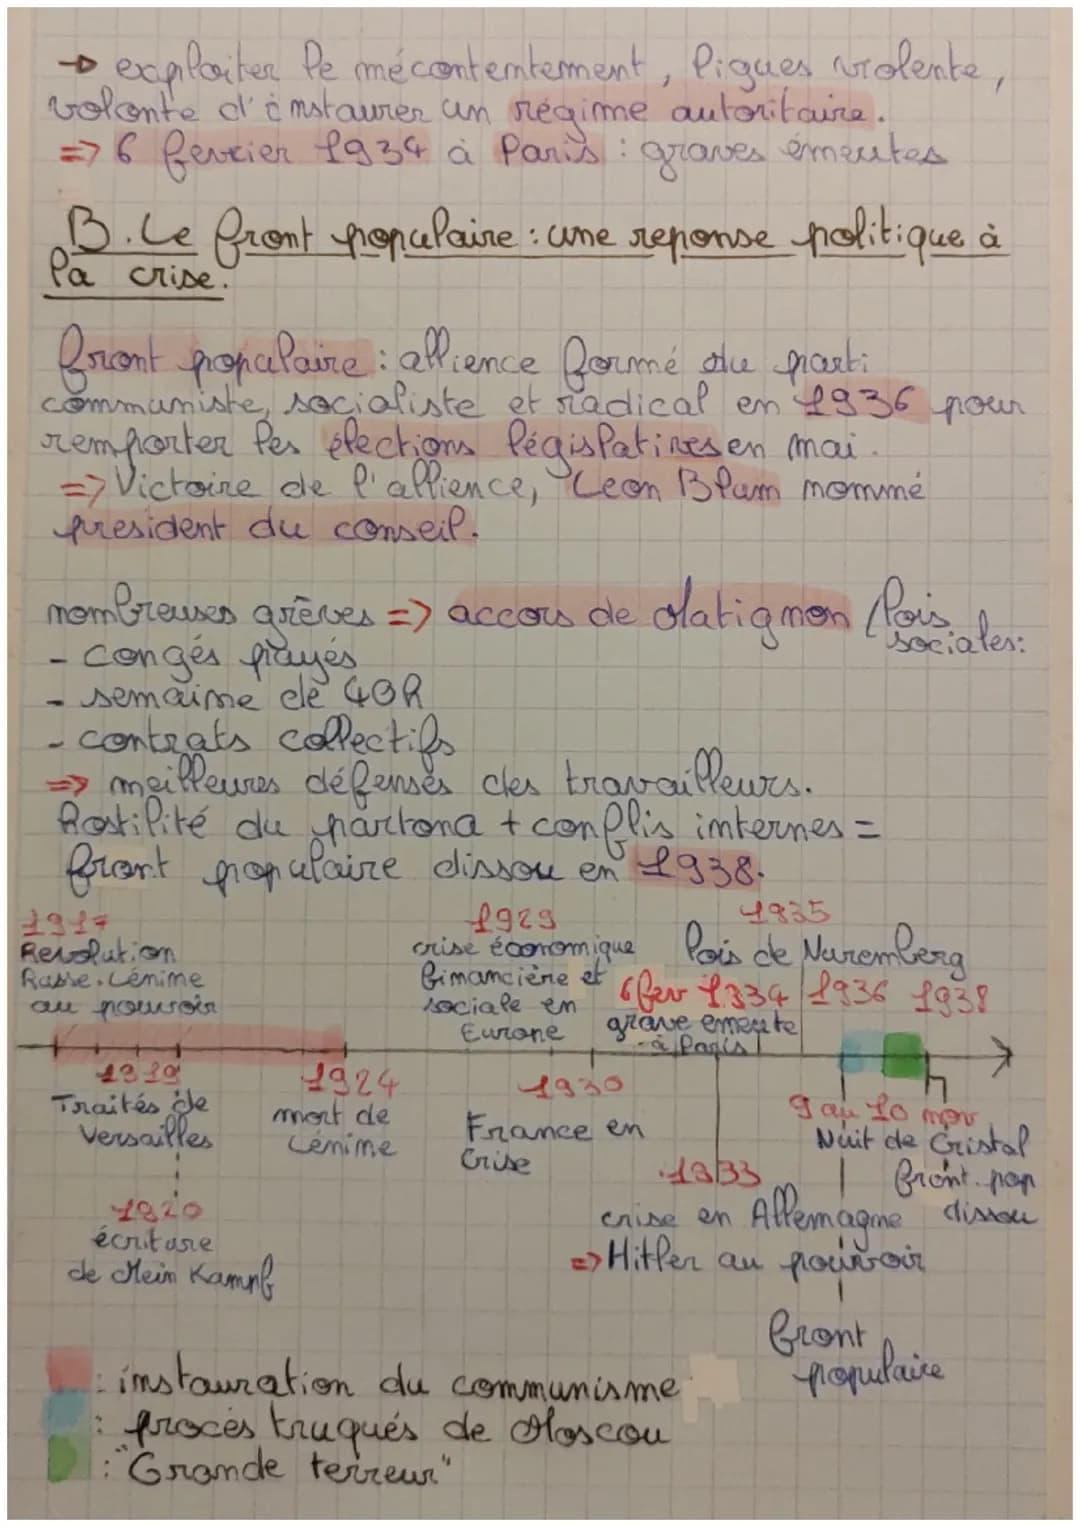 → exploiter le mécontentement, ligues violente,
volonte d'instaurer un régime autoritaire.
=> 6 fevrier 1934 à Paris : graves émeutes
B. Le front populaire : une reponse politique à
la crise.
front populaire : allience formé du parti
communiste, socialiste et radical en 1936 pour
remporter les élections législatives en mai.
=> Victoire de l'allience, Leon Blum nommé
president du conseil.
nombreuses grèves => accors de Matignon / lois
sociales :
- congés payés
- semaine de 40h
- contrats collectifs
=> meilleures défenses des travailleurs.
hostilité du partona + conflis internes =
front populaire dissou en 1938.
1917
Revolution
Russe. Lénine
au pouvoir
1929
crise économique
financière et
sociale en
Europe
1935
lois de Nuremberg
6 fev 1934
grave emeute
à Paris
1936
1938
1919
Traités de
Versailles
1924
mort de
Lénine
1930
France en
Crise
9 au 10 nov
Nuit de Cristal
front. pop
dissou
1933
crise en Allemagne
=> Hitler au pouvoir
1920
écriture
de Mein Kampf
front
populaire
: instauration du communisme
: procès truqués de Moscou
: "Grande terreur"